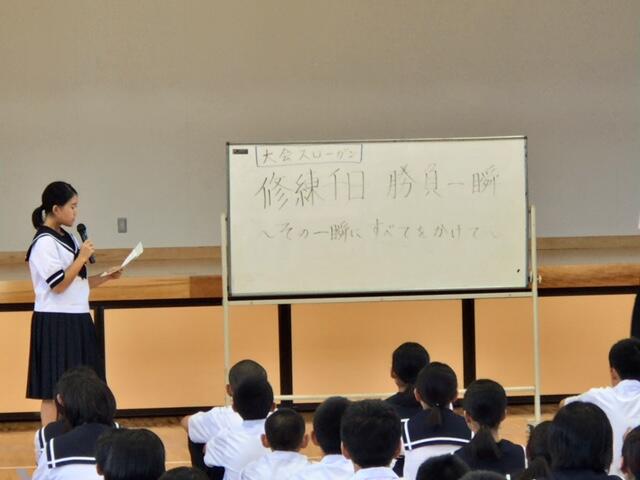 大会スローガン
修練千日 勝負一瞬
～その一瞬にすべてをかけて～